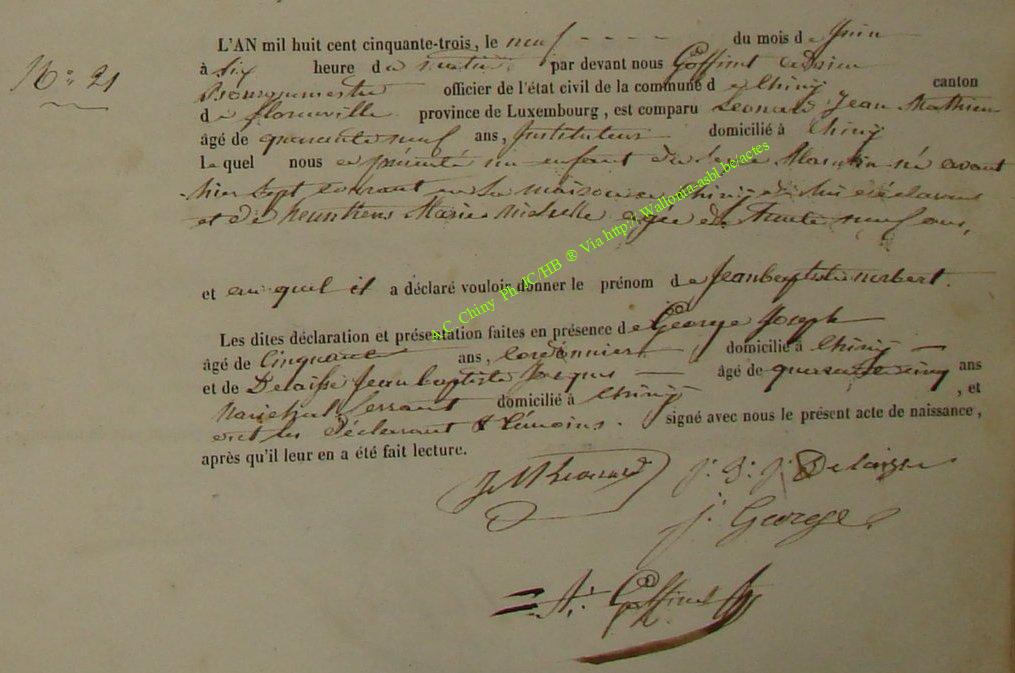 N° 21
L'AN mil huit cent cinquante-trois, le neuf - - - - du mois de Juin
à six heure du matin par devant nous Goffinet Adrien
Bourguemestre officier de l'état civil de la commune de Chiny canton
de florenville province de Luxembourg, est comparu Léonard Jean Mathieu
âgé de quarante neuf ans, Instituteur domicilié à Chiny
Lequel nous a présenté un enfant du sexe Masculin né avant
hier sept courant en sa maison à Chiny de lui déclarant
et de Marie agée de trente neuf ans,
et auquel il a déclaré vouloir donner le prénom de Jeanbaptiste norbert.
Les dites déclaration et présentation faites en présence de George Joseph
âgé de Cinquante ans, Cordonnier domicilié à Chiny
et de Delaisse Jeanbaptiste Jacques âgé de quarante cinq ans
Maréchal ferrant domicilié à Chiny , et
ont les déclarant & témoins. signé avec nous le présent acte de naissance,
après qu'il leur en a été fait lecture.
JM Léonard J. B. J. Delaisse
J. George
A. Goffinet
A.C. Chiny Ph JC/HB ® Via http://Wallonia-asbl.be/actes